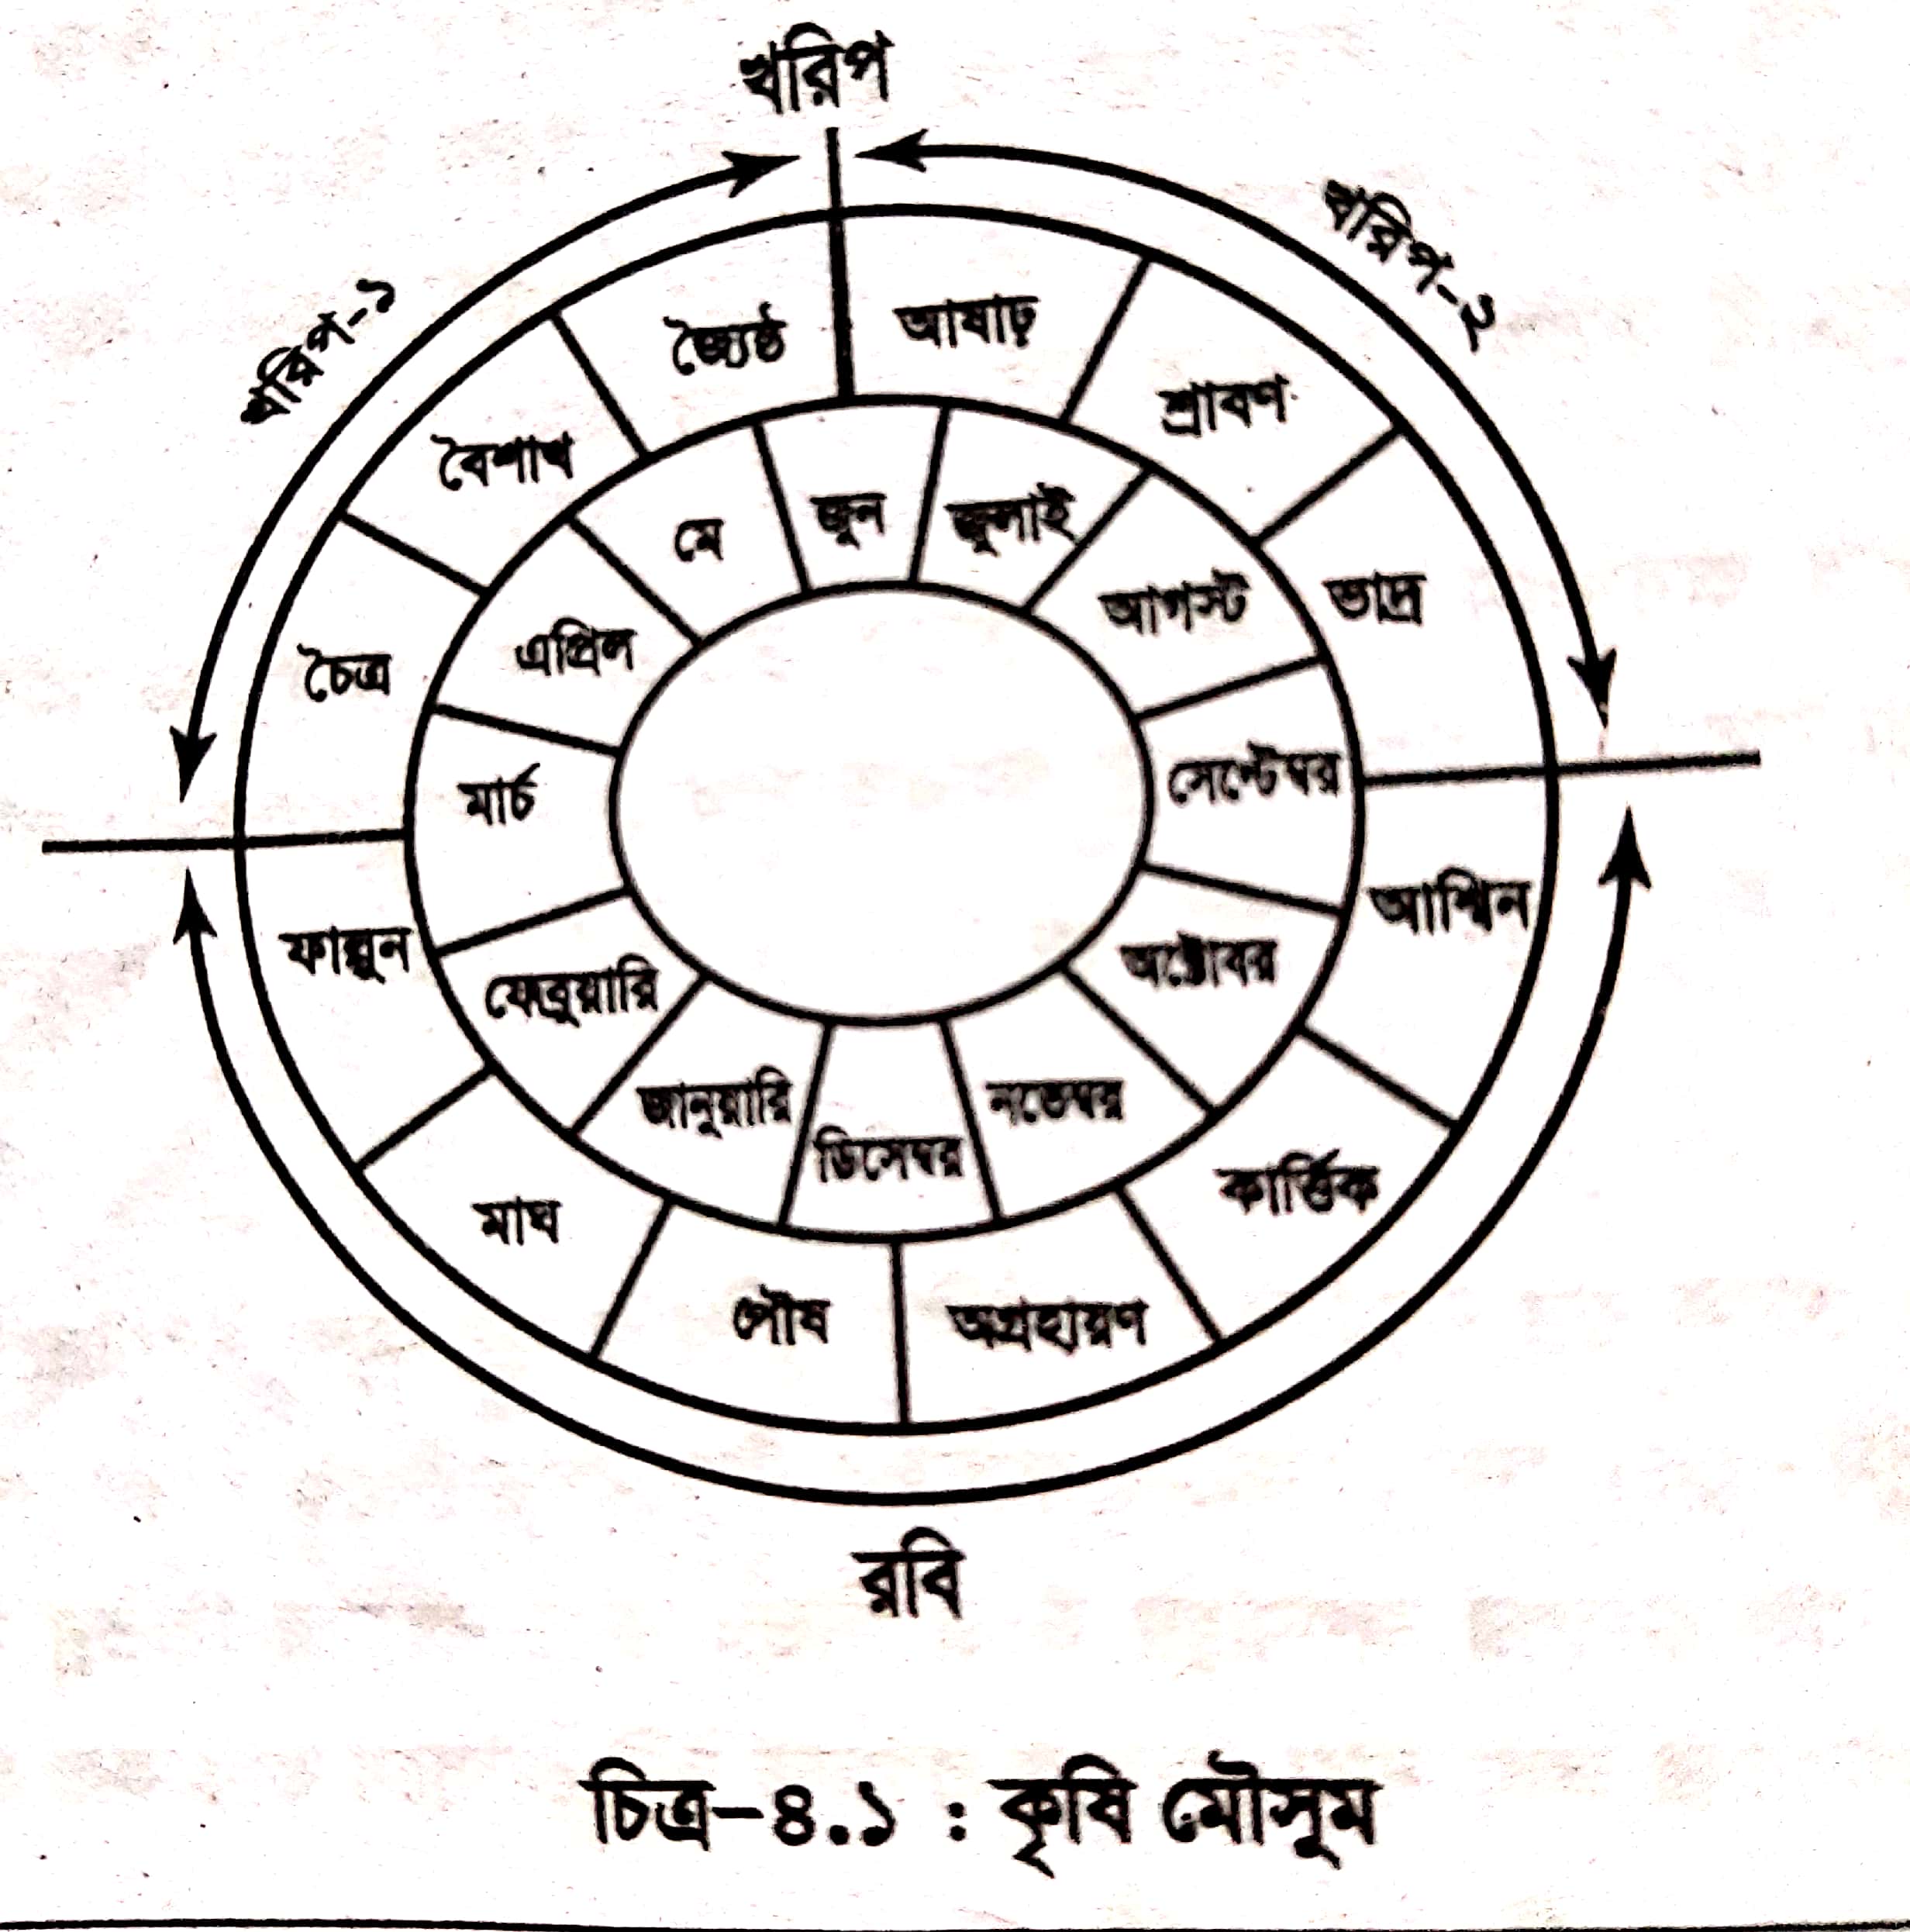 খরিপ
খরিপ-১
খরিপ-২
জ্যৈষ্ঠ
আষাঢ়
শ্রাবণ
বৈশাখ
ভাদ্র
চৈত্র
মে
জুন
জুলাই
আগস্ট
এপ্রিল
মার্চ
সেপ্টেম্বর
আশ্বিন
ফাল্গুন
ফেব্রুয়ারি
অক্টোবর
জানুয়ারি
ডিসেম্বর
নভেম্বর
মাঘ
কার্ত্তিক
পৌষ
অগ্রহায়ণ
রবি
চিত্র-৪.১ : কৃষি মৌসুম